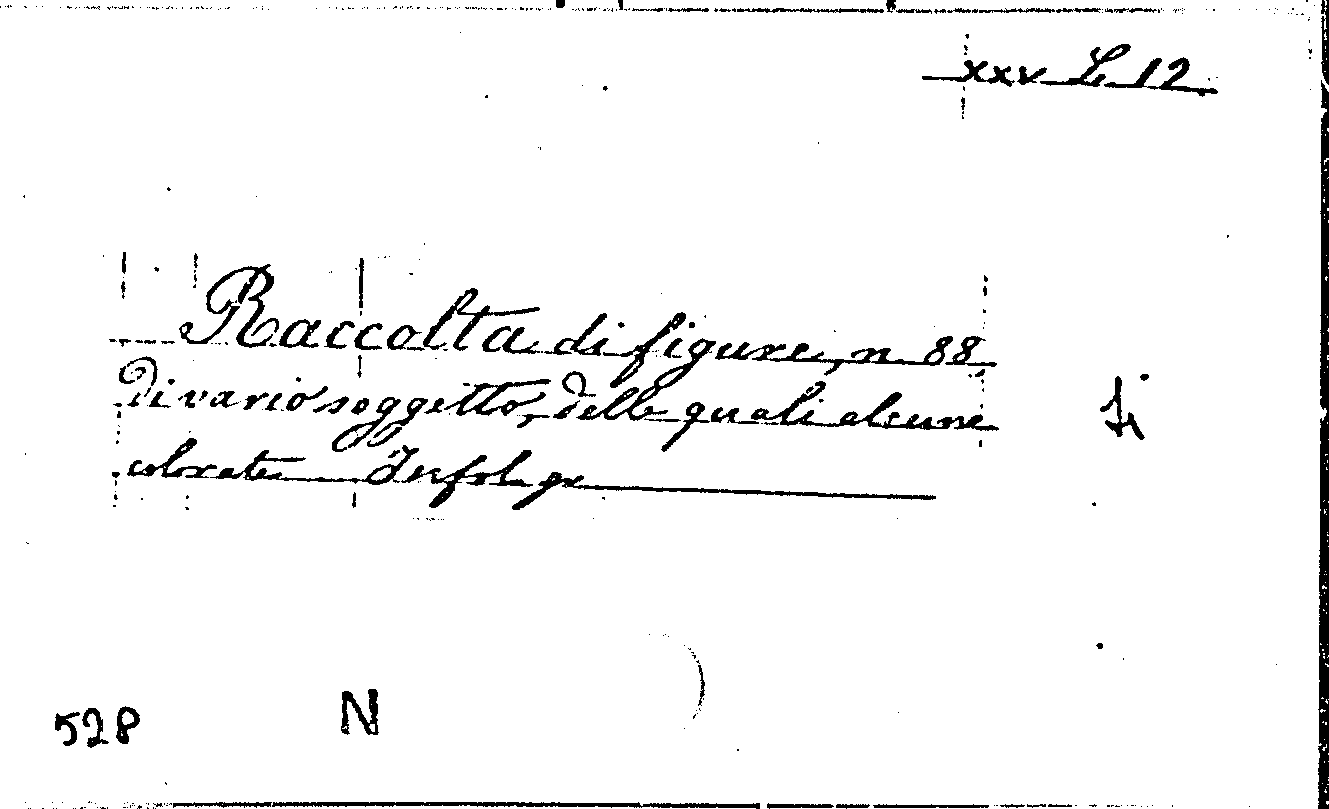 XXV L 12
Raccolta di figure, n. 88,
di vario soggetto, delle quali alcune
colorate In fol. gr.
528 N